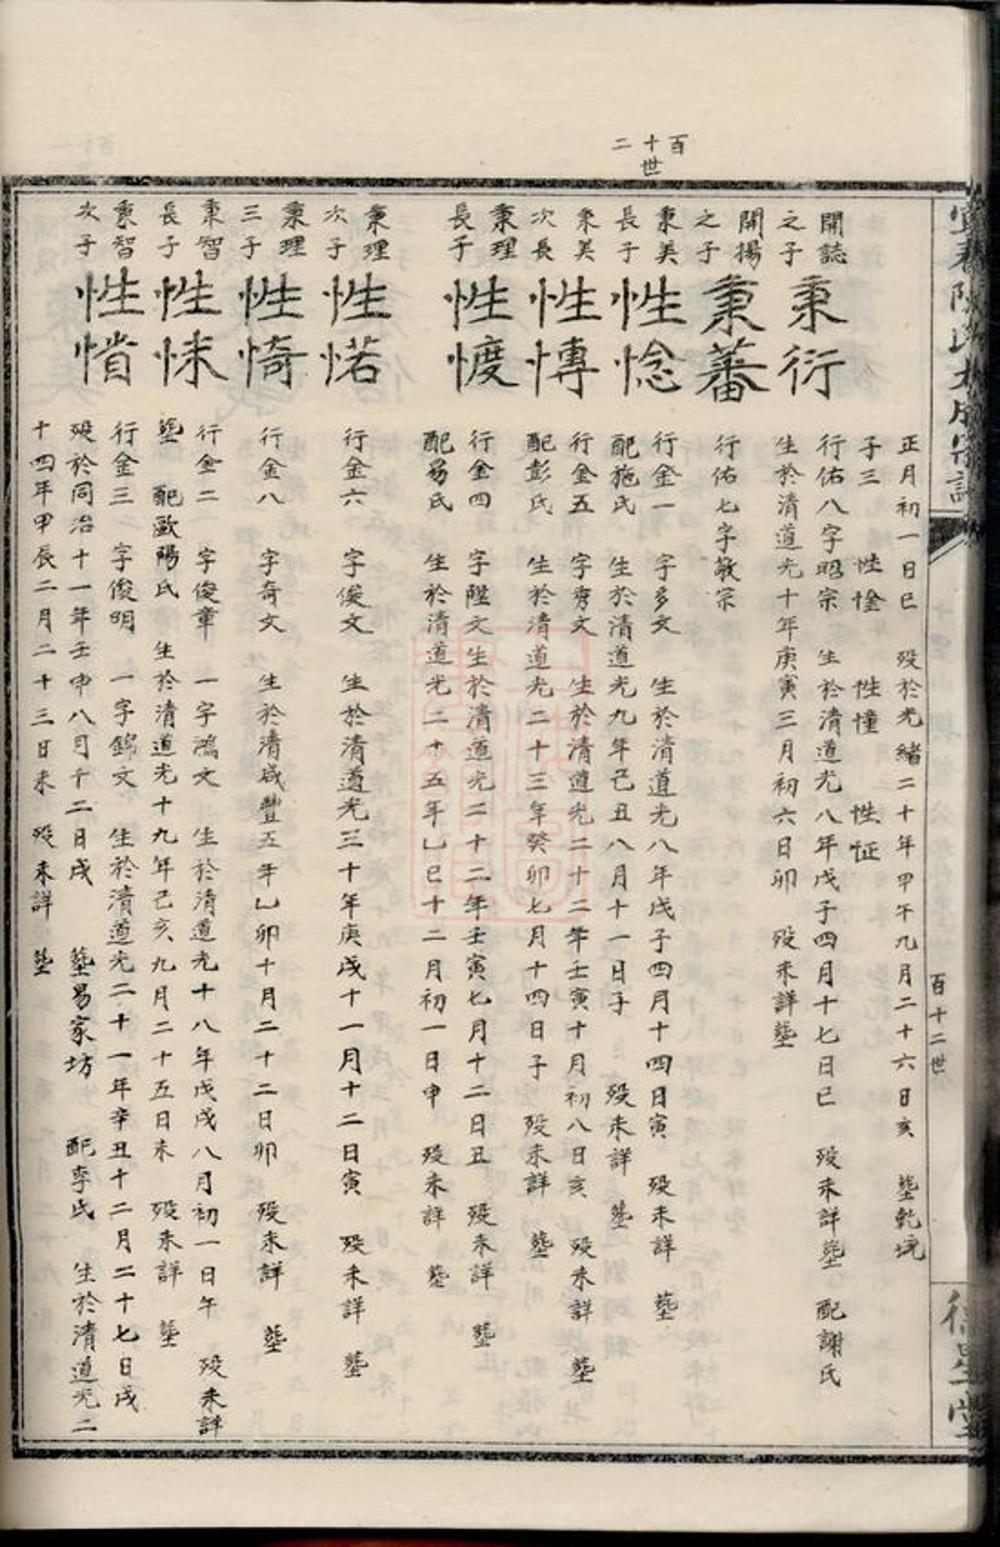 百
十世
二
宜春陳氏大成宗譜
百十二世
德星堂
正月初一日巳 殁於光緒二十年甲午九月二十六日亥 塟乾坑
子三 性惍 性憧 性怔
開誌之子 秉衍 行佑八字昭宗 生於清道光八年戊子四月十七日巳 殁未詳塟 配謝氏
生於清道光十年庚寅三月初六日卯 殁未詳塟
開揚之子 秉蕃 行佑七字敏宗
秉美長子 性惗 行金一 字多文 生於清道光八年戊子四月十四日寅 殁未詳 塟
配施氏 生於清道光九年己丑八月十一日子 殁未詳 塟
秉美次長 性慱 行金五 字秀文 生於清道光二十二年壬寅十月初八日亥 殁未詳 塟
配彭氏 生於清道光二十三年癸卯七月十四日子 殁未詳 塟
秉理長子 性㦄 行金四 字陞文生於清道光二十二年壬寅七月十二日丑 殁未詳 塟
配易氏 生於清道光二十五年乙巳十二月初一日申 殁未詳 塟
秉理次子 性惹 行金六 字俊文 生於清道光三十年庚戌十一月十二日寅 殁未詳 塟
秉理三子 性㥓 行金八 字奇文 生於清咸豐五年乙卯十月二十二日卯 殁未詳 塟
秉智長子 性悚 行金二 字俊章 一字鴻文 生於清道光十八年戊戌八月初一日午 殁未詳
塟 配歐陽氏 生於清道光十九年己亥九月二十五日未 殁未詳 塟
秉智次子 性愲 行金三 字俊明 一字錦文 生於清道光二十一年辛丑十二月二十七日戌
殁於同治十一年壬申八月十二日戌 塟易家坊 配李氏 生於清道光二
十四年甲辰二月二十三日未 殁未詳 塟